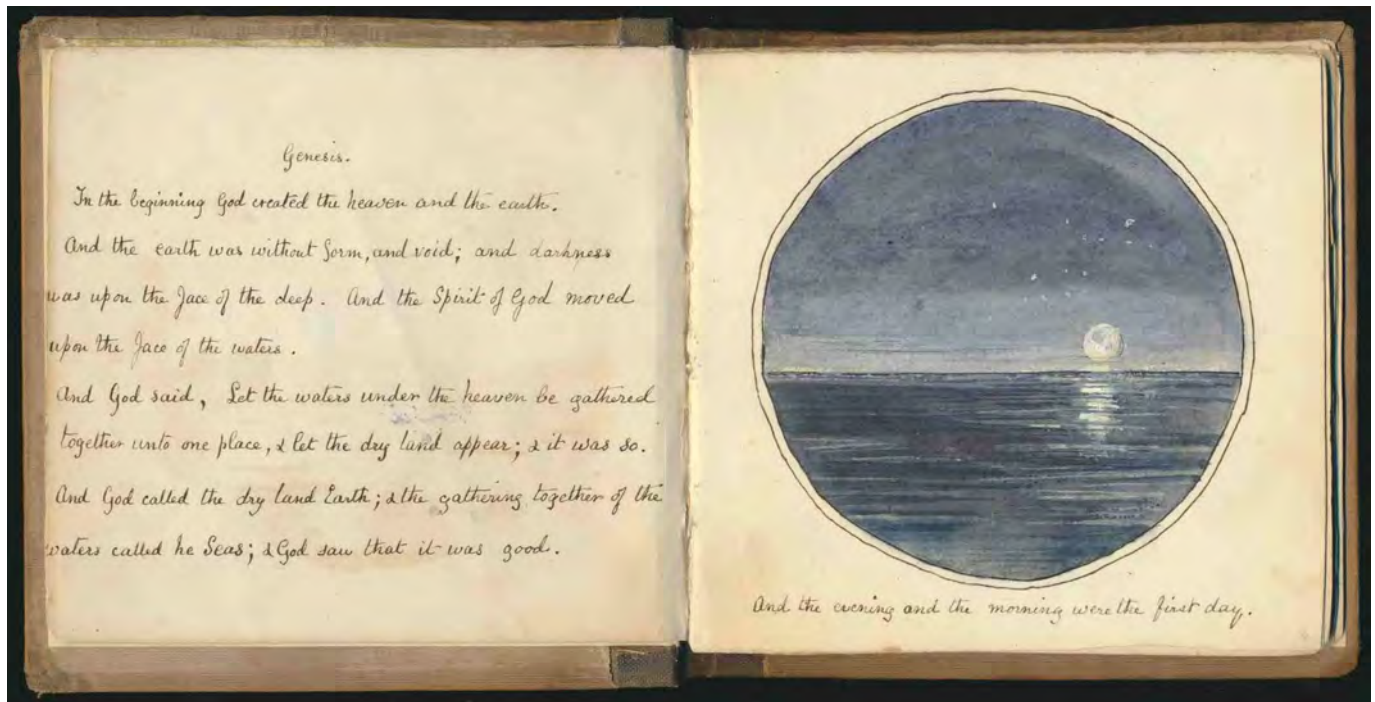 Genesis.
In the beginning God created the heaven and the earth.
And the earth was without form, and void; and darkness
was upon the face of the deep. And the Spirit of God moved
upon the face of the waters.
And God said, Let the waters under the heaven be gathered
together unto one place, & let the dry land appear; & it was so.
And God called the dry land Earth; & the gathering together of the
waters called he Seas; & God saw that it was good.
And the evening and the morning were the first day.